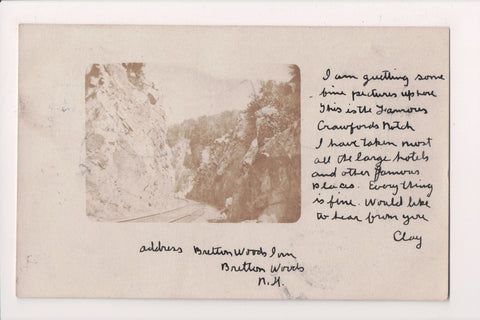 I am guetting some
fine pectures up here
This is the Famous
Crawfords Notch
I have taken most
all the large hotels
and other famous
places. Everything
is fine. Would like
to hear from you
Clay
address Bretton Woods Inn
Bretton Woods
N.H.